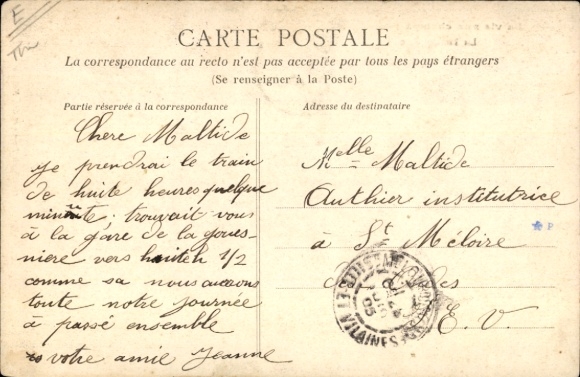 E
CARTE POSTALE
La correspondance au recto n'est pas acceptée par tous les pays étrangers
(Se renseigner à la Poste)
Partie réservée à la correspondance
Chere Maltide
je prendrai le train
de huite heures quelque
minute. trouvait vous
à la gare de la goues-
niere vers huiteh 1/2
comme sa nous aurons
toute notre journée
à passé ensemble
votre amie Jeanne
Adresse du destinataire
Melle Maltide
Authier institutrice
à St Méloire
des
E. V.
P
ILLE-ET-VILAINE
05